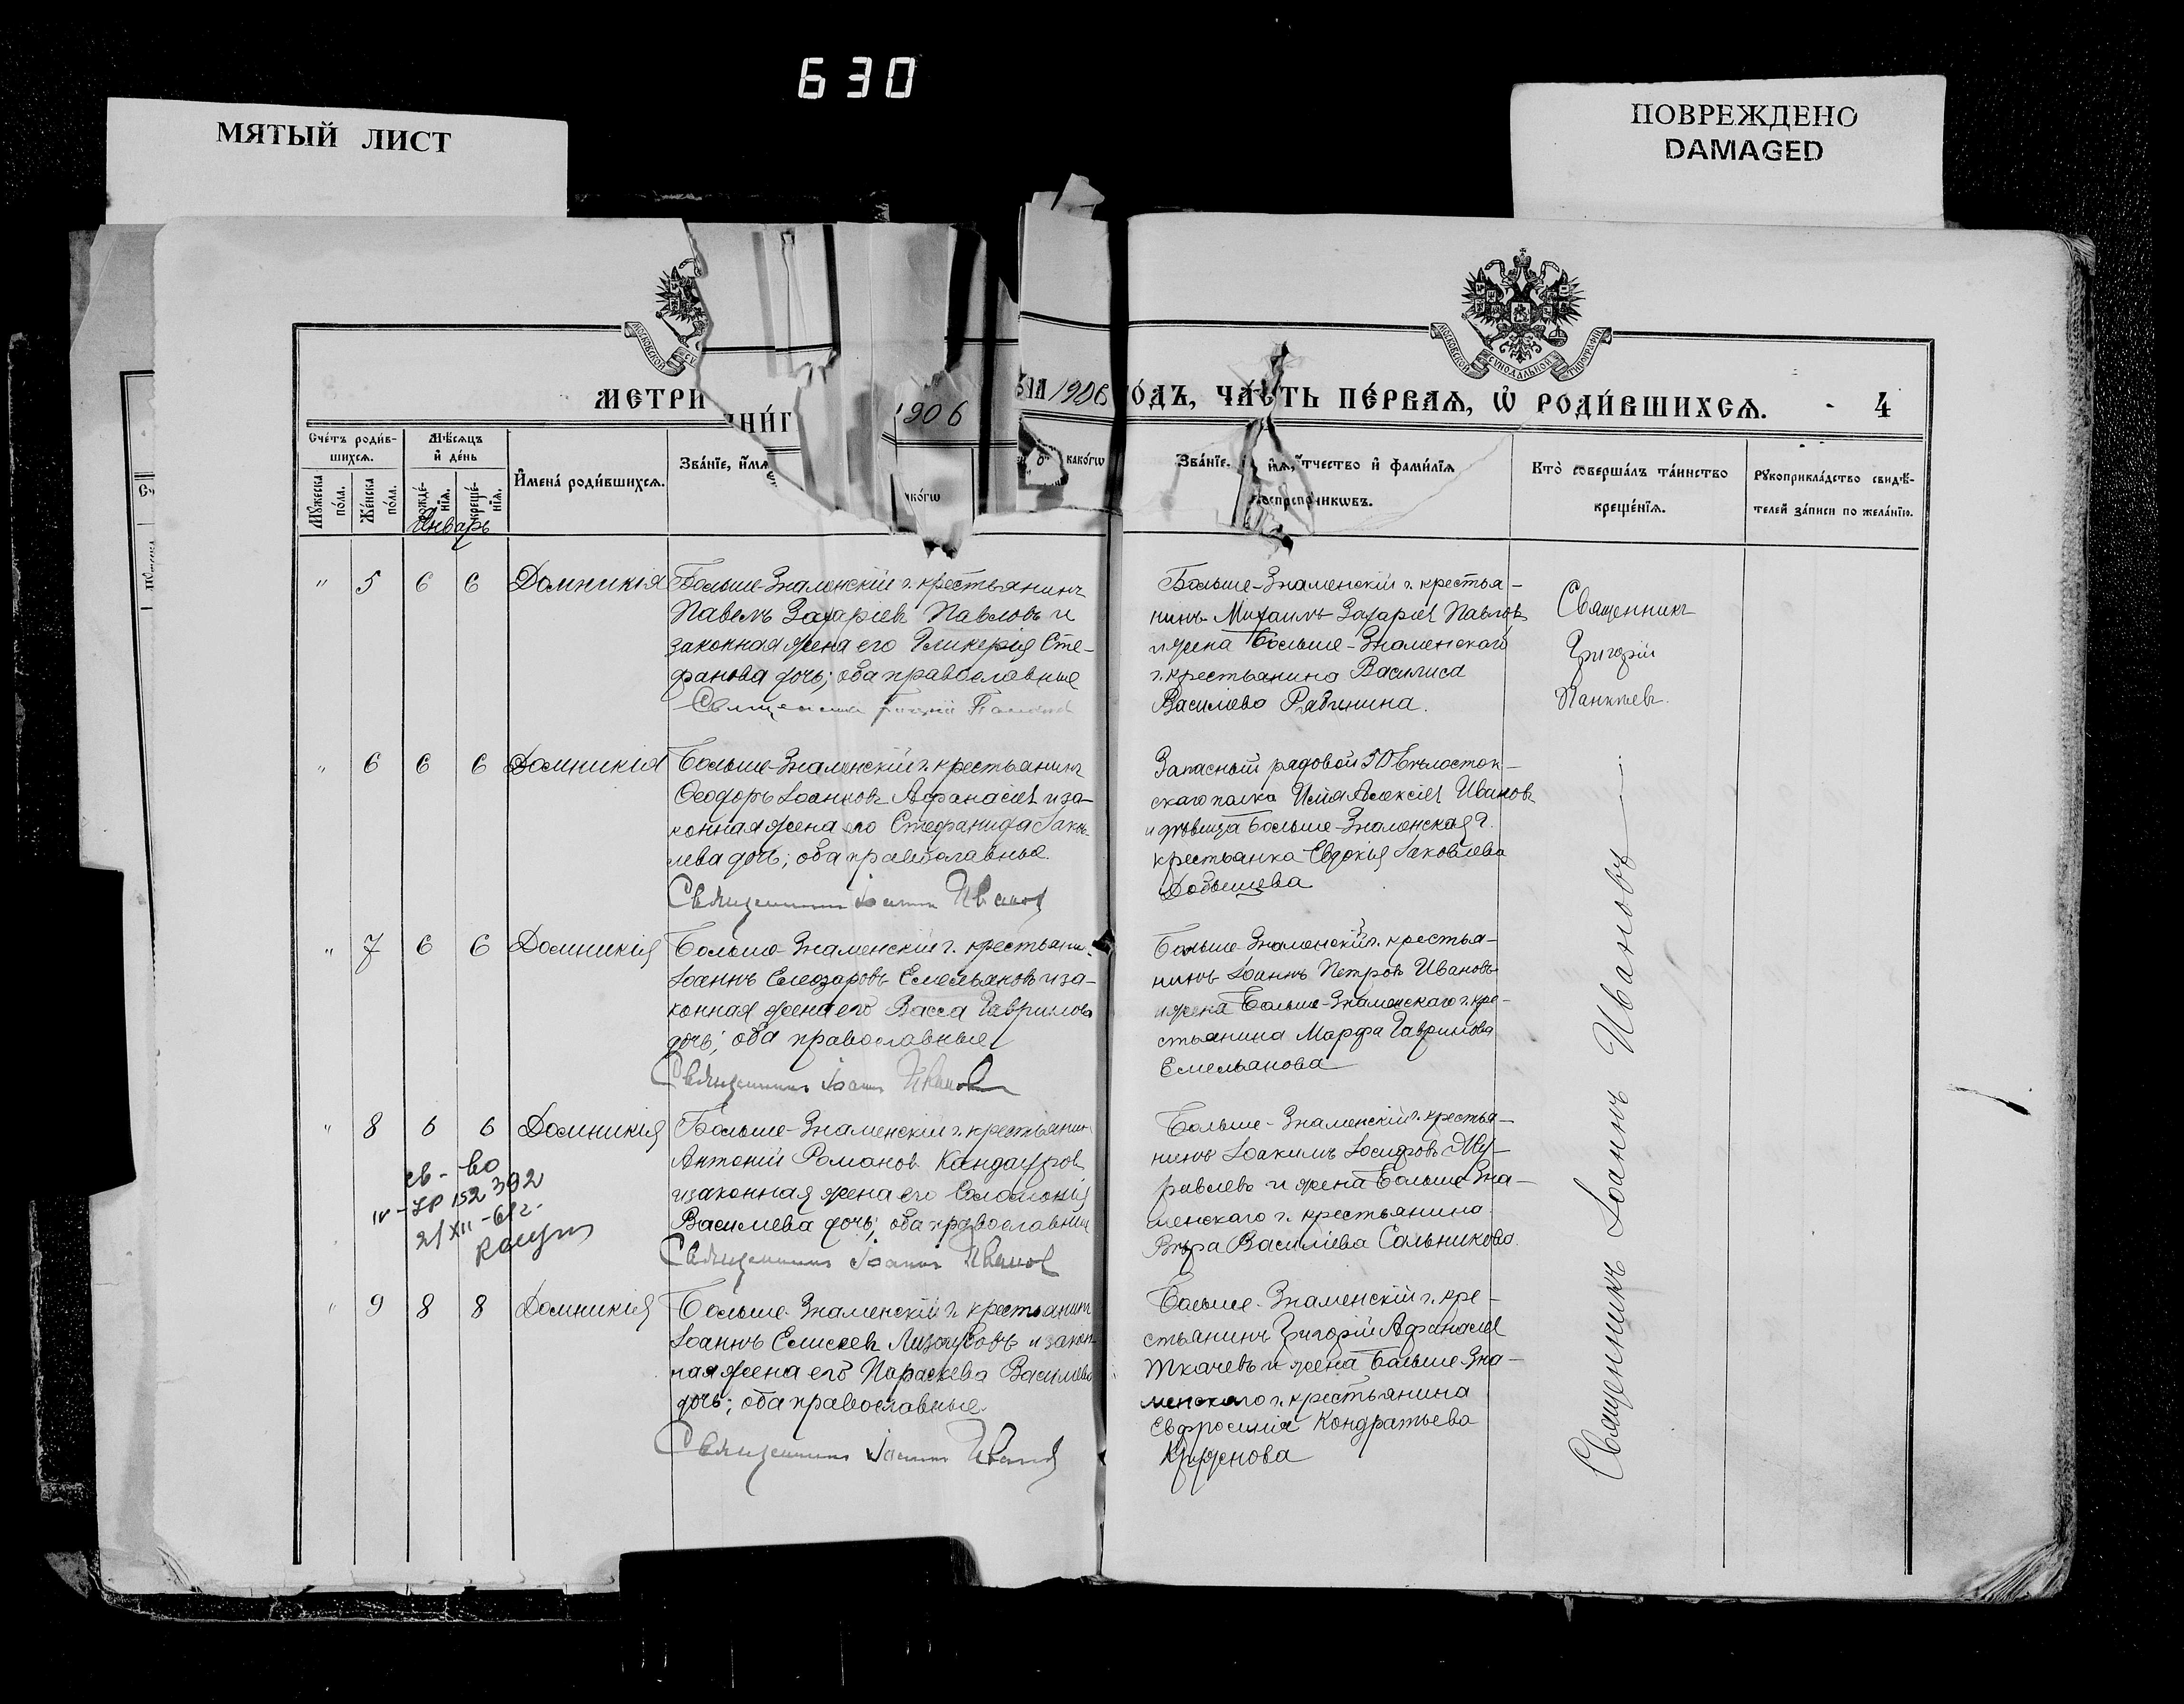 630
МЯТЫЙ ЛИСТ
ПОВРЕЖДЕНО
DAMAGED
МОСКОВСКОЙ
МОСКОВСКОЙ СѴНОДАЛЬНОЙ ТИПОГРАФІИ
МЕТРИ
НИ́Г
906
1906
ОДЪ, ЧА́СТЬ ПЕ́РВАЯ, Ѽ РОДИ́ВШИХСЯ.
4
Сче́тъ роди́в-
шихся.
Мѣ́сяцъ
и҆ де́нь
Мꙋжеска
по́ла.
Же́нска
по́ла.
рожде́-
нїѧ.
креще́-
нїѧ.
Январь
И҆мена̀ роди́вшихся.
Зва́нїе, и҆́мѧ
како́гѡ
Кто̀ соверша́лъ та́инство
креще́нїѧ.
Рꙋкоприкла́дство свидѣ́-
телей за́писи по жела́нїю.
" 5 6 6 Домникія
Больше-Знаменскій г. крестьянинъ
Павелъ Захаріевъ Павловъ и
законная жена его Гликерія Сте-
фанова дочь; оба православные
Священникъ
Больше-Знаменскій г. крестья-
нинъ Михаилъ Захаріевъ Павловъ
и жена Больше-Знаменскаго
г. крестьянина Василиса
Василіева Рябинина.
Священникъ
Григорій
Панкѣевъ.
" 6 6 6 Домникія
Больше-Знаменскій г. крестьянинъ
Ѳеодоръ Іоанновъ Афанасіевъ и за-
конная жена его Стефанида Іаков-
лева дочь; оба православные.
Священникъ Іоаннъ Ивановъ
Запасный рядовой 50 Бѣлосток-
скаго полка Илія Алексіевъ Ивановъ
и дѣвица Больше-Знаменская г.
крестьянка Евдокія Іаковлева
Добышева
" 7 6 6 Домникія
Больше-Знаменскій г. крестьянин
Іоаннъ Елеозаровъ Емельяновъ и за-
конная жена его Васса Гаврилова
дочь; оба православные
Священникъ Іоаннъ Ивановъ
Больше-Знаменскій г. крестья-
нинъ Іоаннъ Петровъ Ивановъ
и жена Больше-Знаменскаго г. кре-
стьянина Марфа Гаврилова
Емельянова
" 8 6 6 Домникія
св-во
IV-ЯР 152392
21/XII-61г.
Больше-Знаменскій г. крестьянин
Антоній Романовъ Кандауровъ
и законная жена его Соломонія
Василіева дочь; оба православные
Священникъ Іоаннъ Ивановъ
Больше-Знаменскій г. крестья-
нинъ Іоакимъ Іосифовъ Му-
равлевъ и жена Больше-Зна-
менскаго г. крестьянина
Вѣра Василіева Сальникова.
" 9 8 8 Домникія
Больше-Знаменскій г. крестьянинъ
Іоаннъ Елисеевъ Лизогубовъ и закон-
ная жена его Параскева Василіева
дочь; оба православные.
Священникъ Іоаннъ Ивановъ
Больше-Знаменскій г. кре-
стьянинъ Григорій Афанасіев
Ткачевъ и жена Больше-Зна-
менскаго г. крестьянина
Евфросинія Кондратьева
Священникъ Іоаннъ Ивановъ